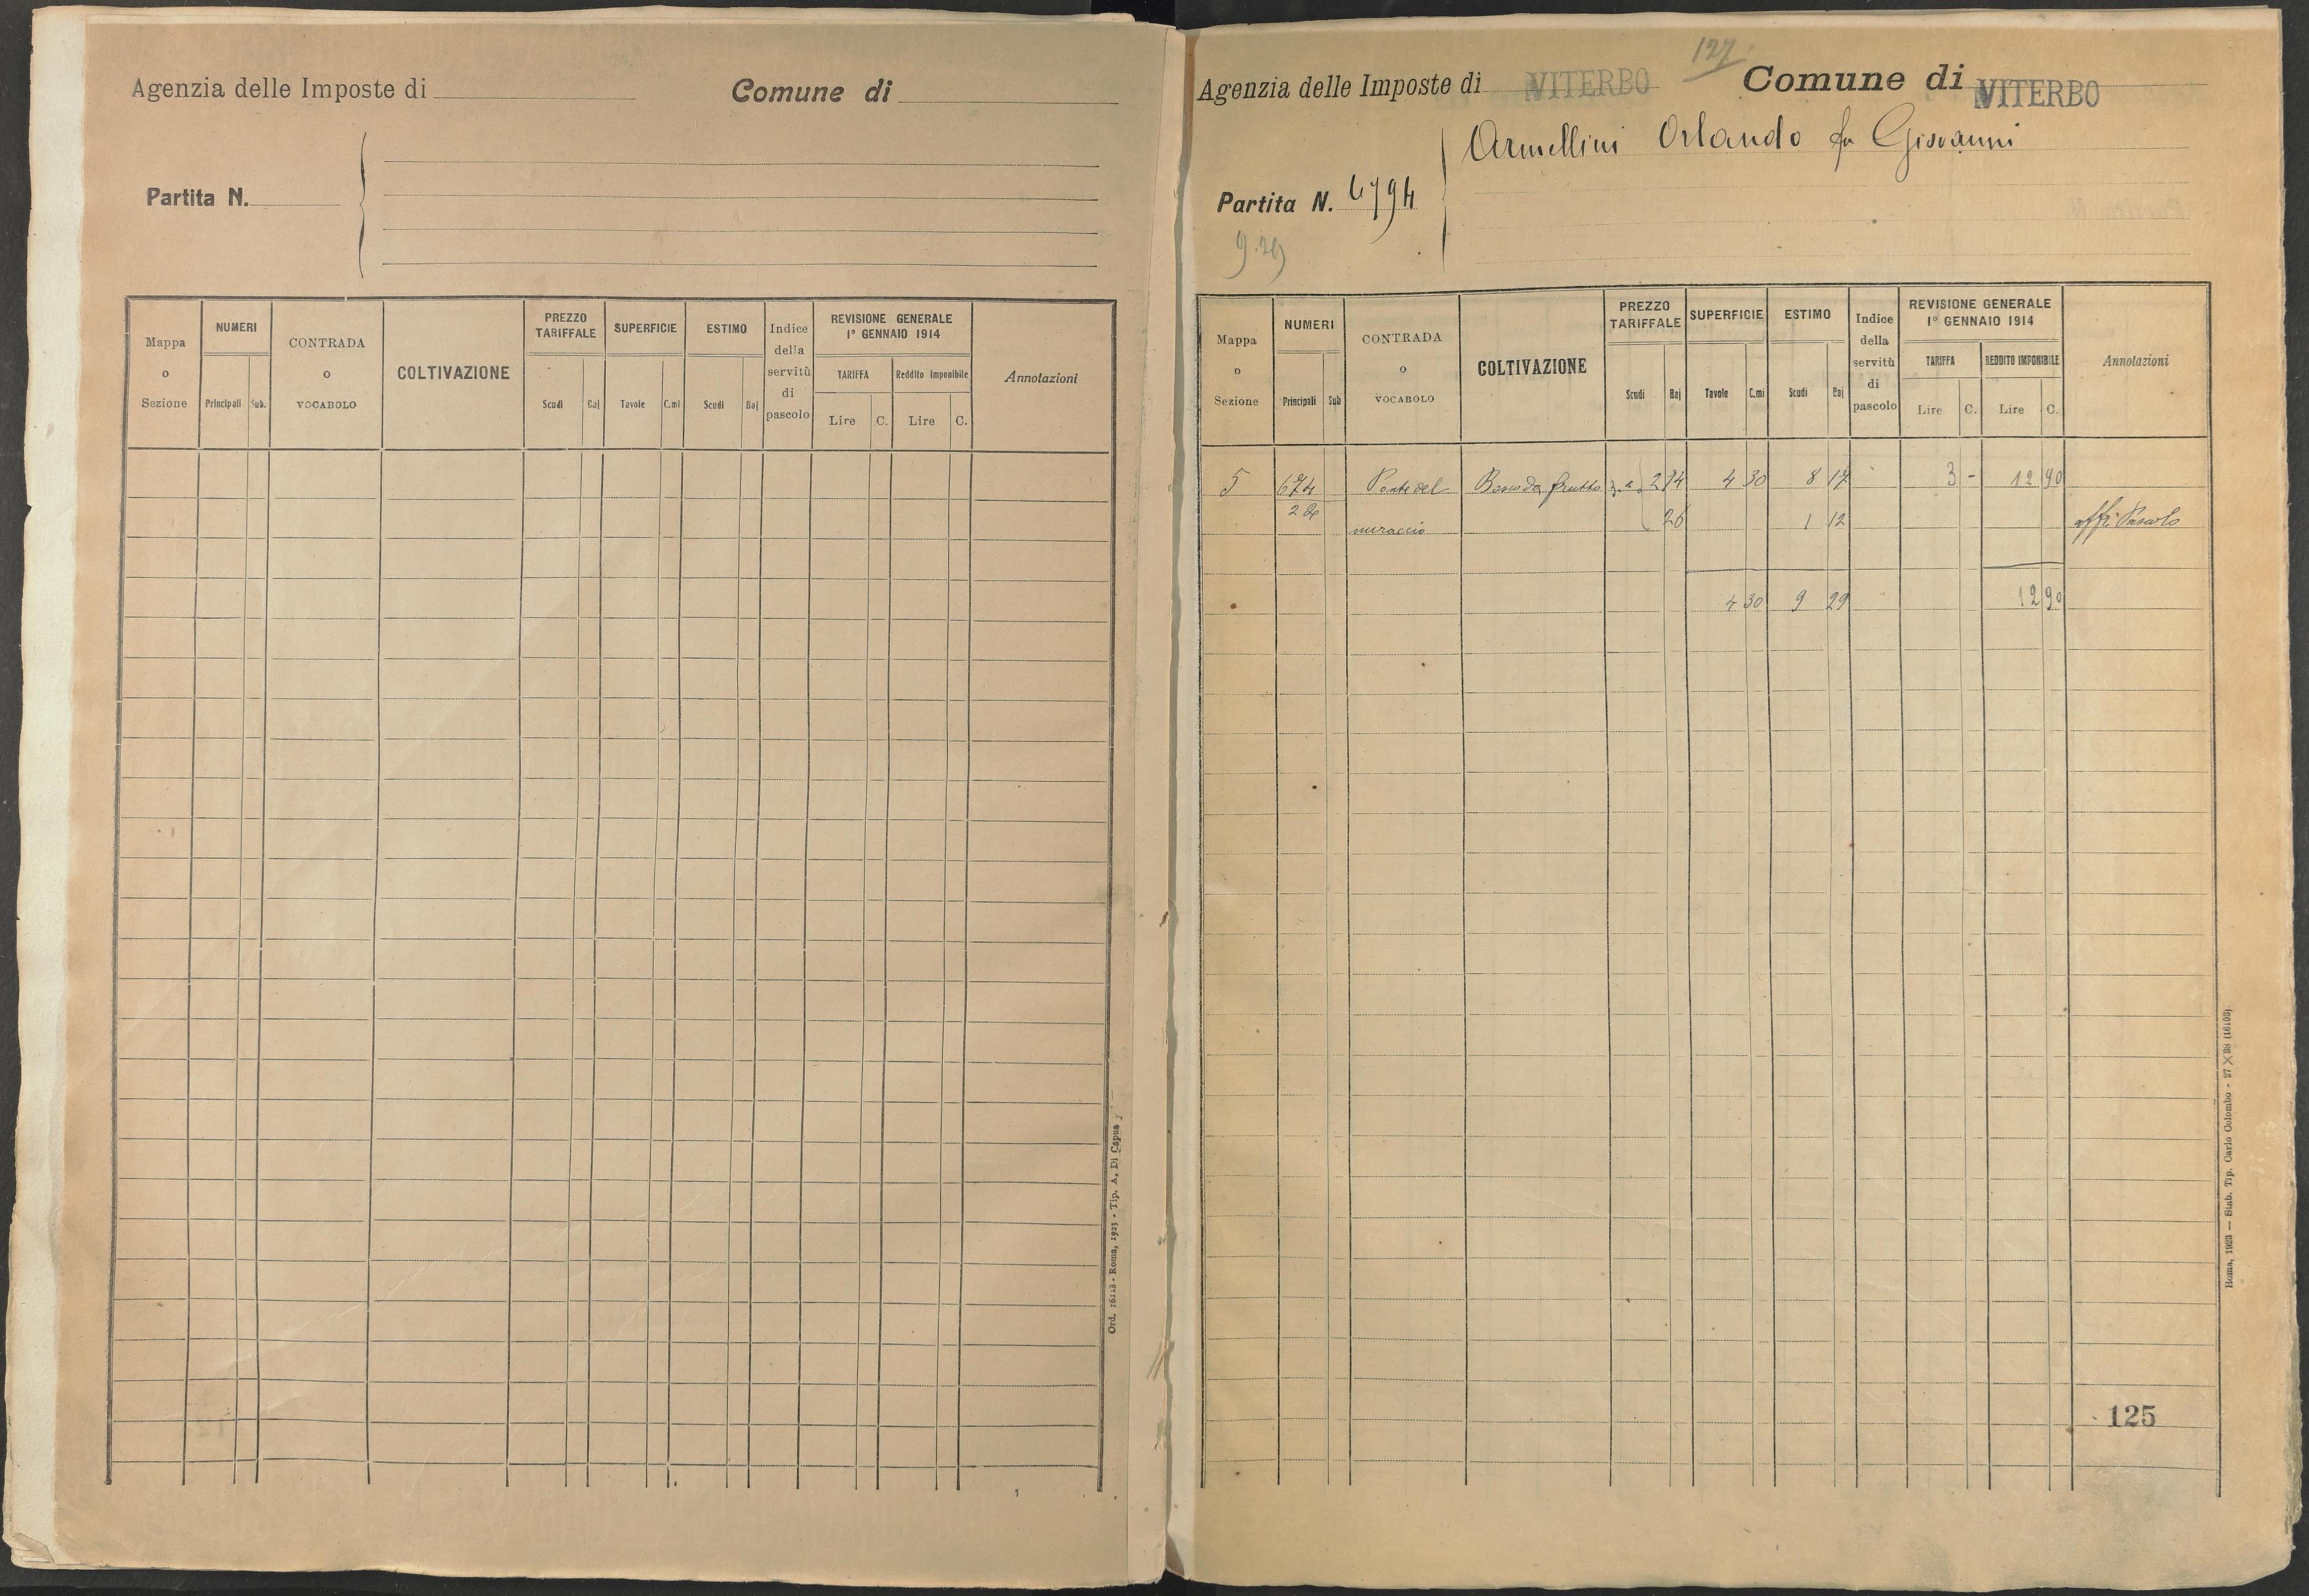 Agenzia delle Imposte di
Comune di
Partita N.
Mappa o Sezione
NUMERI
Principali
Sub.
CONTRADA o VOCABOLO
COLTIVAZIONE
PREZZO TARIFFALE
Scudi
Baj
SUPERFICIE
Tavole
C.mi
ESTIMO
Scudi
Baj
Indice della servitù di pascolo
REVISIONE GENERALE
1° GENNAIO 1914
TARIFFA
Reddito Imponibile
Lire
C.
Lire
C.
Annotazioni
Ord. 16118 - Roma, 1923 - Tip. A. Di Capua
1
127
Agenzia delle Imposte di VITERBO
Comune di VITERBO
Armellini Orlando fu Giovanni
Partita N. 6794
9.29
Mappa o Sezione
NUMERI
Principali
Sub
CONTRADA o VOCABOLO
COLTIVAZIONE
PREZZO TARIFFALE
Scudi
Baj
SUPERFICIE
Tavole
C.mi
ESTIMO
Scudi
Baj
Indice della servitù di pascolo
REVISIONE GENERALE
1° GENNAIO 1914
TARIFFA
REDDITO IMPONIBILE
Lire
C.
Lire
C.
Annotazioni
5 674 Ponte del Bosco da frutto 3.a 2 74 4 30 8 17 3 - 12 90
muraccio 26 1 12 aff. Pascolo
4 30 9 29 12 90
125
Roma, 1923 — Stab. Tip. Carlo Colombo - 27 X 38 (16108)